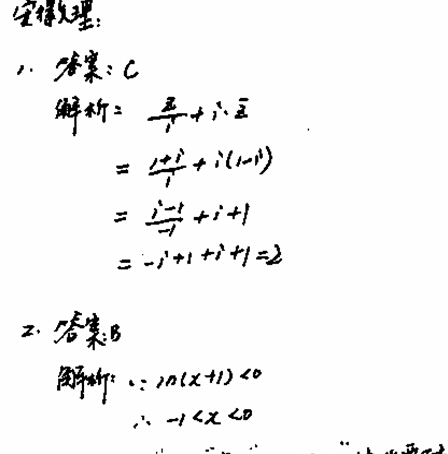 安徽文理:
1. 答案: C
解析: z/i + i·z̄
= (1+i)/i + i(1-i)
= (i-1)/-1 + i+1
= -i+1+i+1=2
2. 答案:B
解析: ∵ ln(x+1)<0
∴ -1<x<0